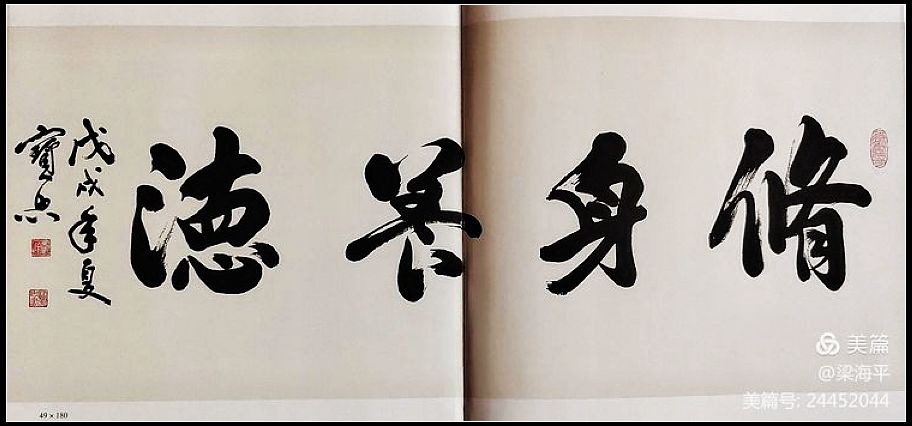 脩身養德
戊戌年夏
寶忠
49×180
美篇
@梁海平
美篇号: 24452044